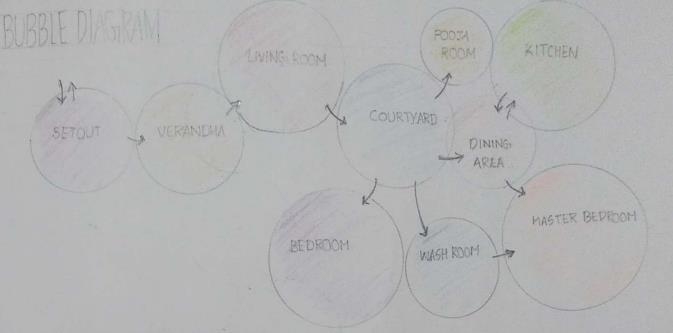 BUBBLE DIAGRAM
LIVING ROOM
POOJA
ROOM
KITCHEN
SETOUT
VERANDHA
COURTYARD
DINING
AREA
BEDROOM
WASH ROOM
MASTER BEDROOM